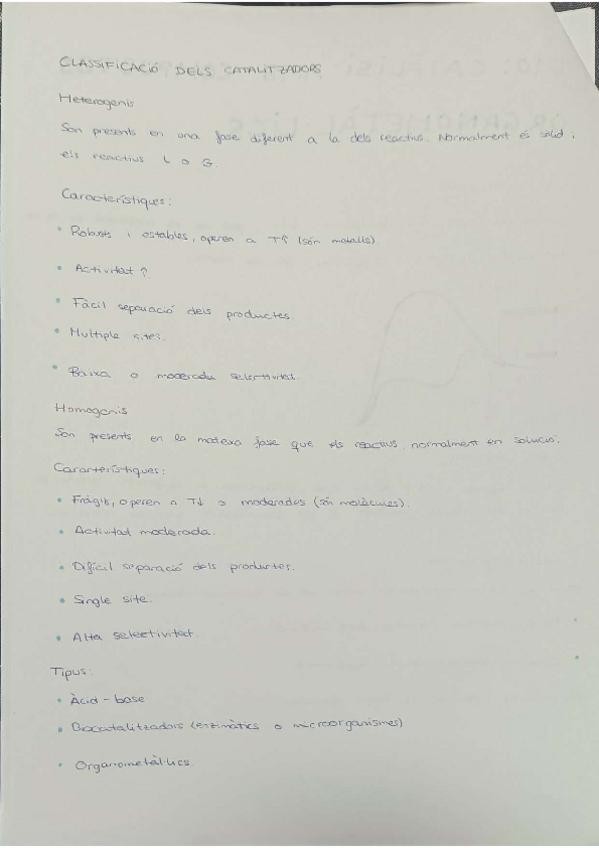 CLASSIFICACIÓ DELS CATALITZADORS
Heterogenis
Són presents en una fase diferent a la dels reactius. Normalment és sòlid i
els reactius L o G.
Característiques:
• Robusts i estables, operen a T↑ (són metalls)
• Activitat ↑
• Fàcil separació dels productes.
• Multiple sites.
• Baixa o moderada selectivitat.
Homogenis
Són presents en la mateixa fase que els reactius, normalment en solució.
Característiques:
• Fràgils, operen a T↓ o moderades (són molècules).
• Activitat moderada.
• Difícil separació dels productes.
• Single site.
• Alta selectivitat.
Tipus:
• Àcid - base
• Biocatalitzadors (enzimàtics o microorganismes)
• Organometàl·lics.